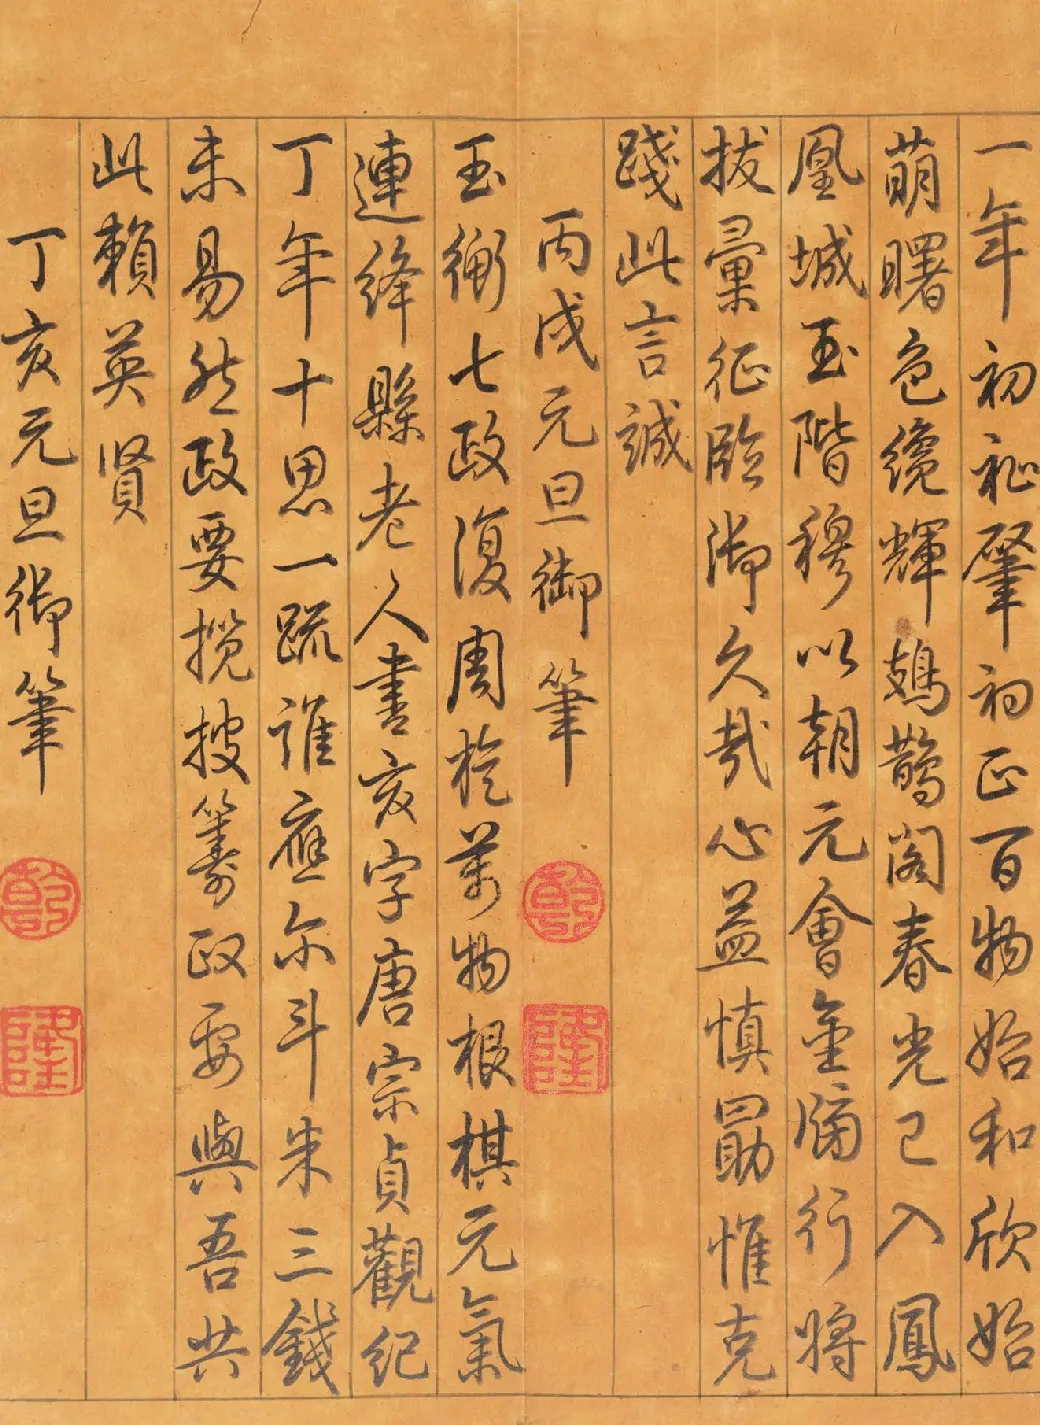 一年初祉肇初正百物始和欣始
萌曙色纔輝鳷鵲閣春光已入鳳
凰城玉階穆以朝元會金牓行將
拔彙征臨御久哉心益慎勖惟克
踐此言誠
丙戌元旦御筆
乾
隆
玉衡七政復周旋萬物根棋元氣
連絳縣老人書亥字唐宗貞觀紀
丁年十思一疏誰應尔斗米三錢
未易然政要攬披籌政要與吾共
此賴英賢
丁亥元旦御筆
乾
隆